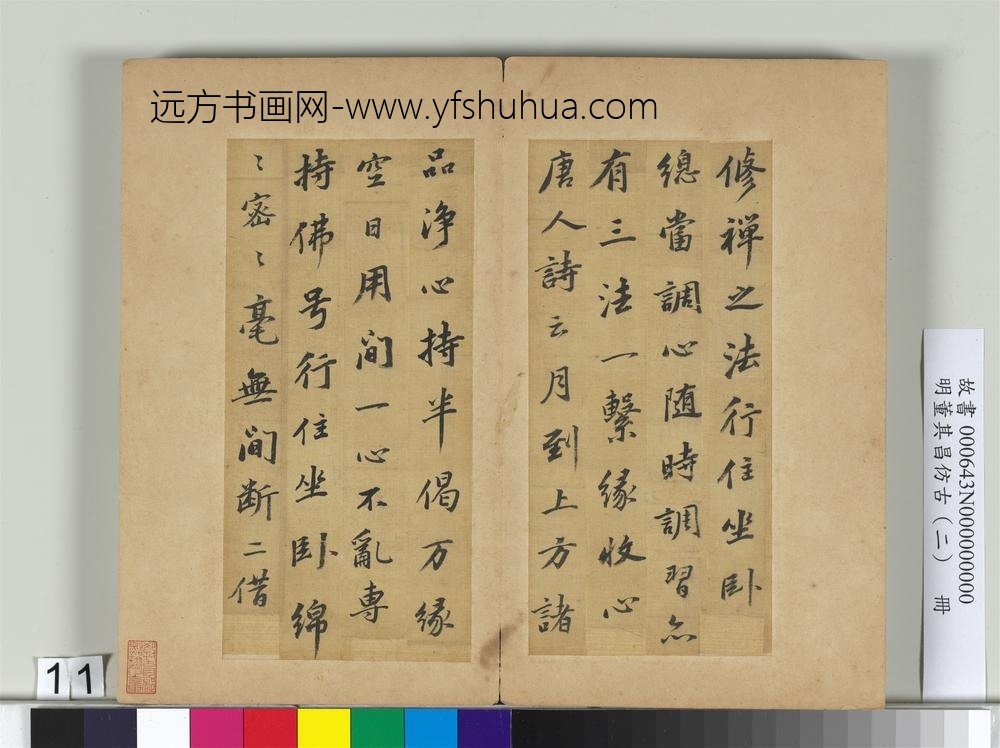 远方书画网-www.yfshuhua.com
修禅之法行住坐卧
總當調心随時調習亦
有三法一繫緣收心
唐人詩云月到上方諸
品浄心持半偈万缘
空日用间一心不亂專
持佛号行住坐卧綿
〻密〻毫無间断二借
故書000643N000000000
明董其昌仿古(二) 冊
11